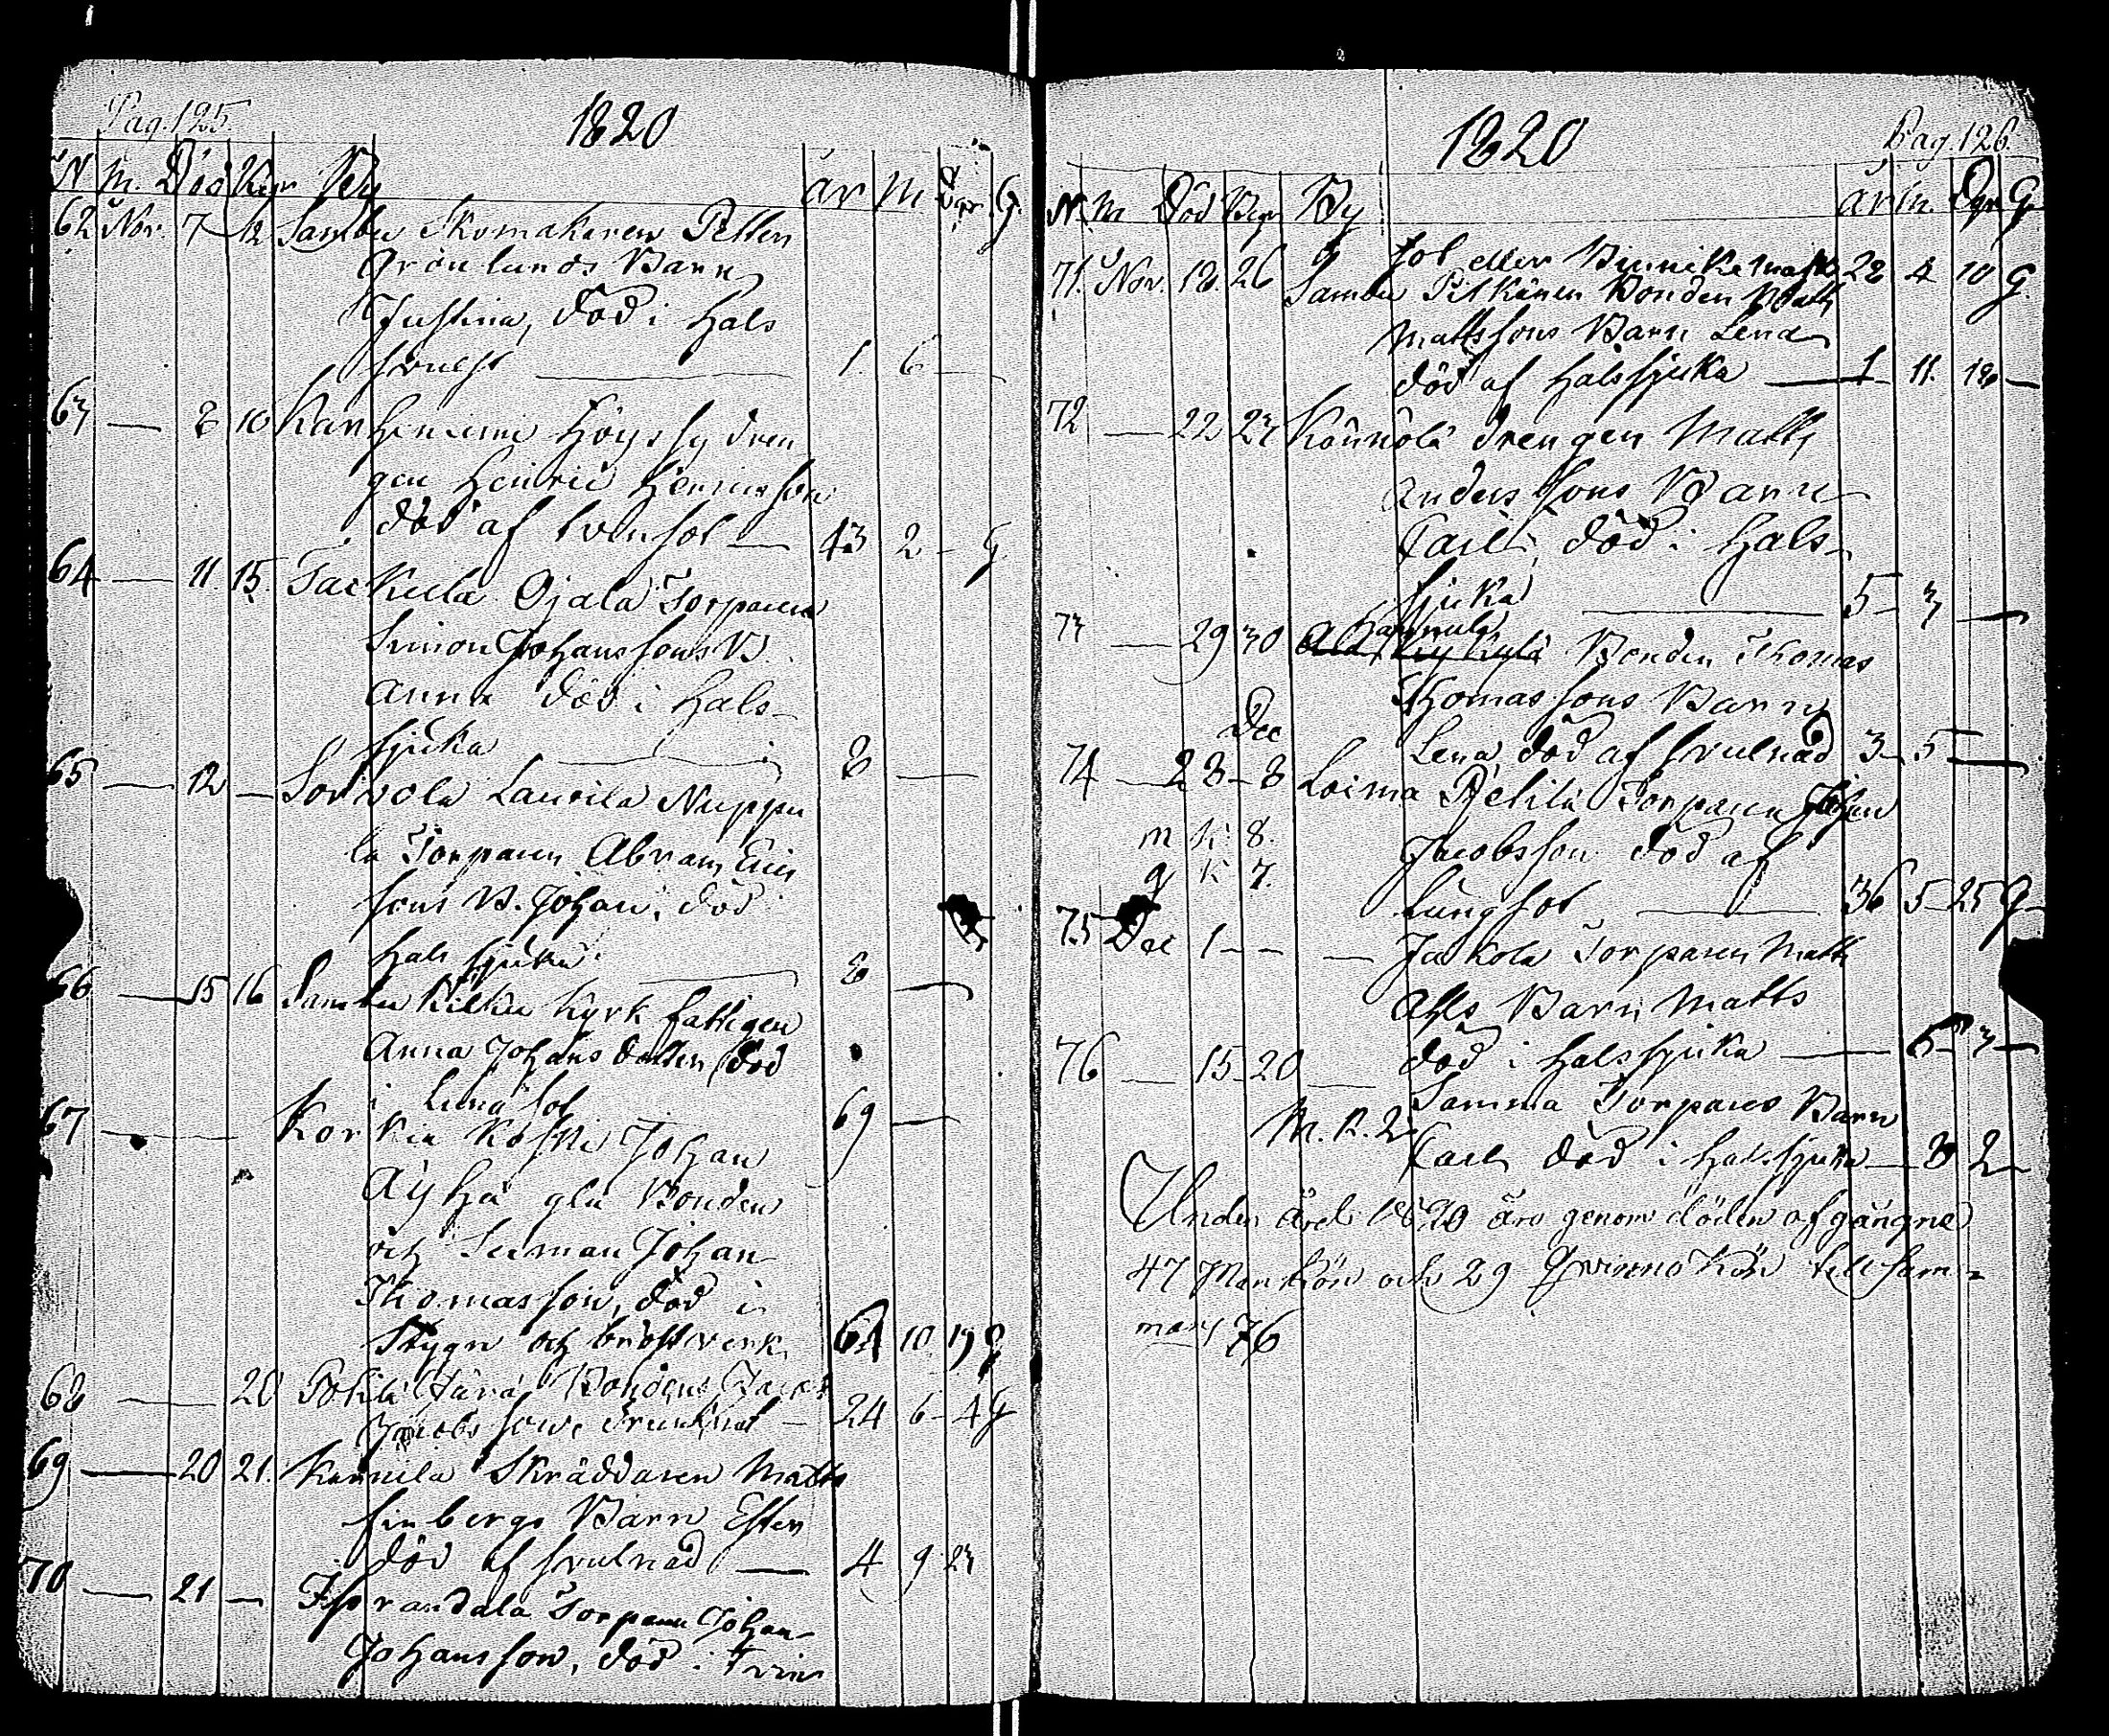 Pag. 125.
1820
N M. Död Begr By år M Dgr. G.
62 Nov. 7 12 Sambu Skomakaren Petter
Grönlunds Barn
Justina, död i Hals
svulst 1. 6
63 — 8 10 Karhiniemi Höyssy dren
gen Henric Henricsson
död af bränsot — 43 2 - G
64 — 11. 15. Tackula Ojala Torparen
Simon Johanssons B.
Anna död i Hals-
sjuka 8 —
65 — 12 — Sorvola Laurila Nuppu
la Torparen Abram Erics
sons B. Johan, död i
Hals sjuka 8 —
66 — 15 16 Sambu Kilku Kyrk fattigen
Anna Johans dotter död
i Lungsot 69 —
67 — Korkia Koski Johan
Äyhä
Bonden
och
Johan
Thomasson, död i
Stygn och bröstverk 64 10 19 G
68 — 20 Bonden Jacob
Jacobsson, drunknat — 24 6 - 4 G
69 — 20 21. Kannila Skräddaren Matts
Finbergs Barn Ester
död af svulnad — 4 9 23
70 — 21 — Torparen Johan
Johansson, död i Tvin
1820
Pag. 126.
N. M Död Begr By År M. Dgr G
sot eller 28 4 10 G.
71. Nov. 18. 26 Sambu Pitkänen Bonden Matts
Mattssons Barn Lena
död af Halssjuka — 1 11. 18 —
72 — 22 23 Kännölä drengen Matts
Anderssons Barn
Carl, död i Hals-
sjuka 5 - 3 —
Hannula
73 — 29 30 Bonden Thomas
Thomassons Barn
Lena, död af svulnad 3 - 5 —
Dec
74 — 28 - 8 Loima Torparen Johan
m K 8. Jacobsson död af
q K 7. Lungsot — 36 5 - 25 G -
75 Dec 1 - - — Jakola Torparen Matts
Barn Matts
död i Halssjuka — 6 - 3 —
76 — 15 - 20 — Samma Torpares Barn
M. K. 2 Carl död i Halssjuka — 8 2 —
Under året 1820 äro genom döden afgångne
47 Mankön och 29 Qvinnokön tillsam-
mans 76